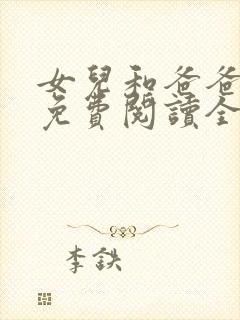 女兒和爸爸
免費閱讀全
李鉄